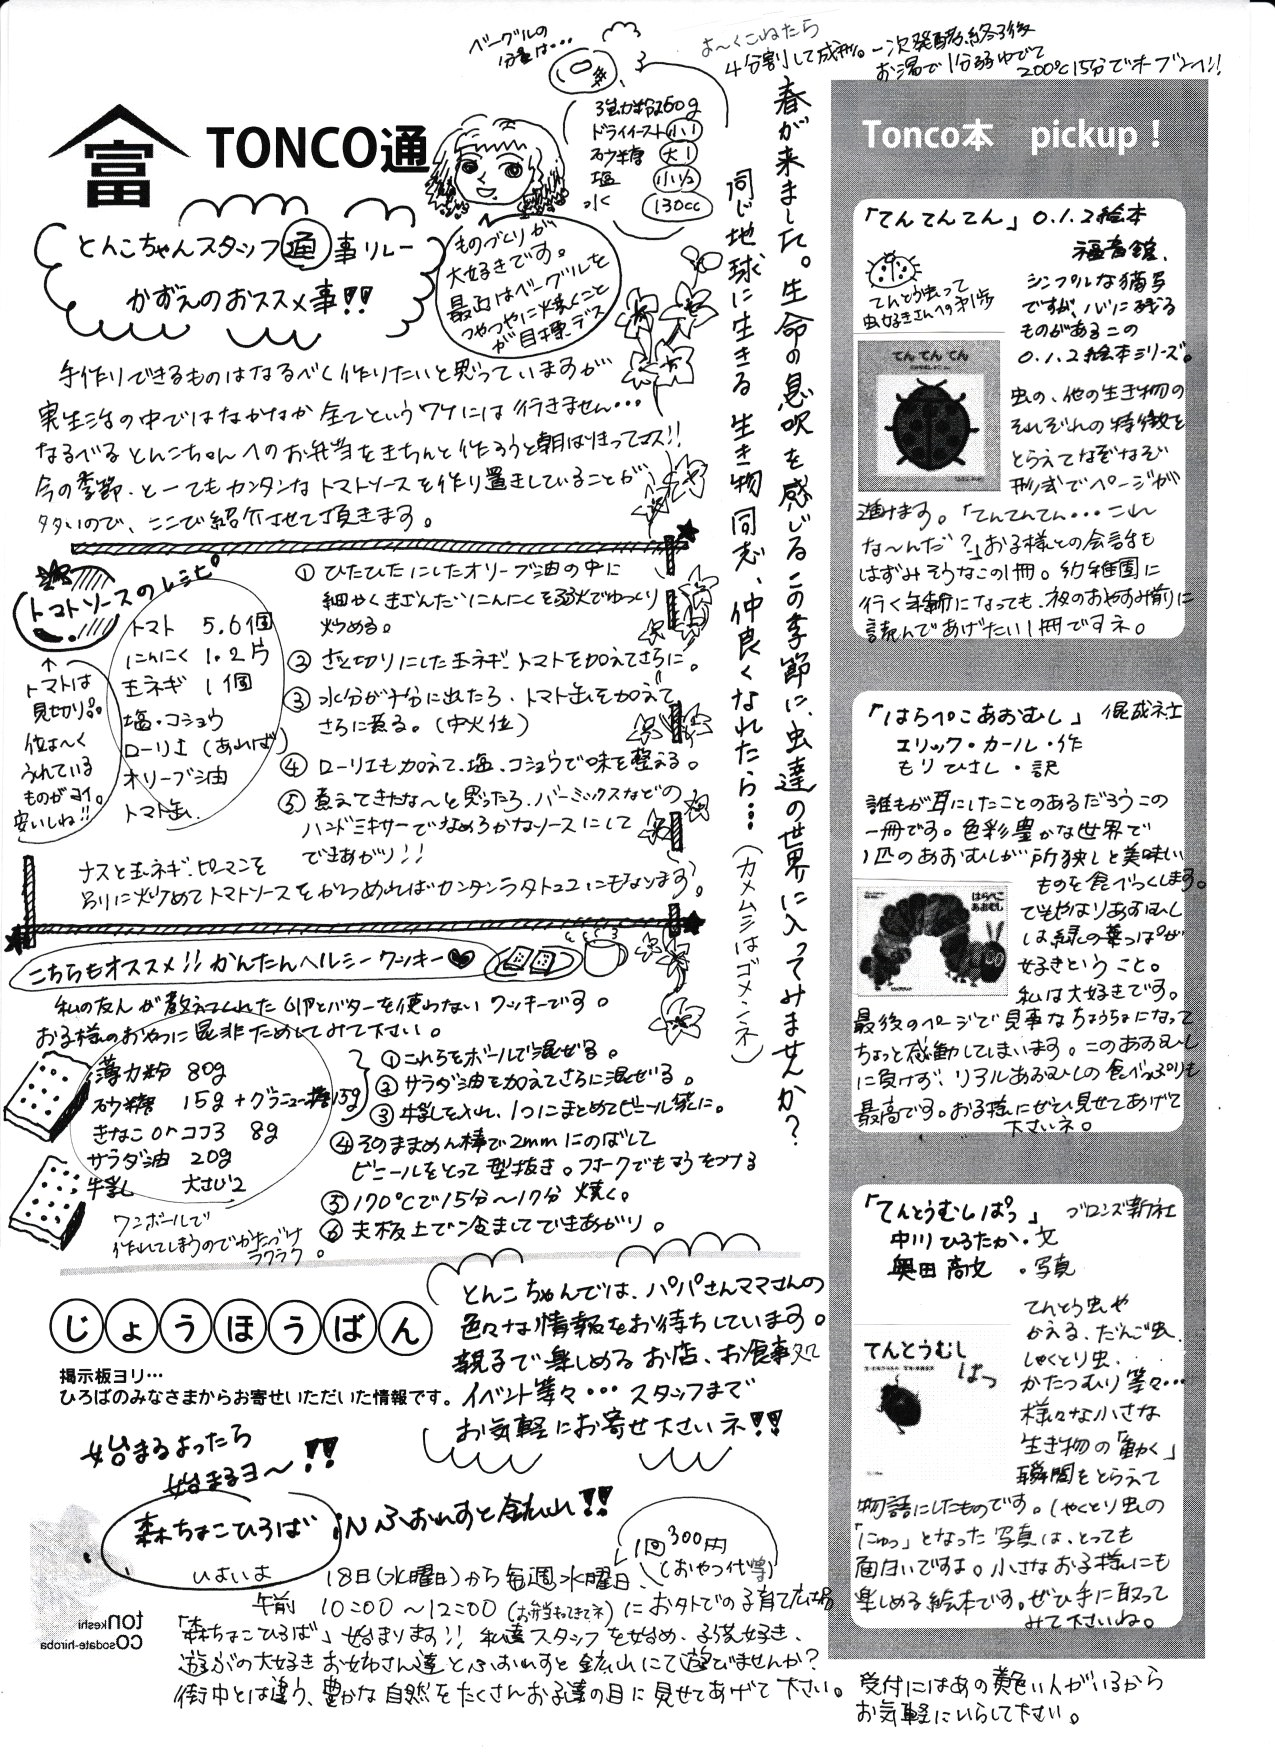 ベーグルの
分量は…
強力粉260g
ドライイースト 小1
砂糖 大1
塩 小1/2
水 130cc
よ〜くこねたら
4分割して成形。一次発酵終了後
お湯で1分弱ゆでて
200℃15分でオーブンへ!!
富
TONCO通
とんこちゃんスタッフ通事リレー
かずえのおススメ事!!
ものづくりが
大好きです。
最近はベーグルを
つやつやに焼くこと
が目標デス
手作りできるものはなるべく作りたいと思っていますが
実生活の中ではなかなか全てというワケには行きません…
なるべるとんこちゃんへのお弁当をきちんと作ろうと朝はりきってマス!!
今の季節、と一てもカンタンなトマトソースを作り置きしていることが
多いので、ここで紹介させて頂きます。
トマトソースのレシピ
トマト 5.6個
にんにく 1.2片
玉ネギ 1個
塩・コショウ
ローリエ(あれば)
オリーブ油
トマト缶
↑
トマトは
見切り品
位よ〜く
うれている
ものがヨイ。
安いしね!!
① ひたひたにしたオリーブ油の中に
細やくきざんだにんにくを弱火でゆっくり
炒める。
② ざく切りにした玉ネギ、トマトを加えてさらに。
③ 水分が十分に出たら、トマト缶を加えて
さらに煮る。(中火位)
④ ローリエも加えて、塩、コショウで味を整える。
⑤ 煮えてきたな〜と思ったら、バーミックスなどの
ハンドミキサーでなめらかなソースにして
できあがり!!
ナスと玉ネギ、ピーマンを
別に炒めてトマトソースをからめればカンタンラタトユユにもなります。
こちらもオススメ!! かんたんヘルシークッキー♥
私の友人が教えてくれた卵とバターを使わないクッキーです。
お子様のおやつに是非ためしてみて下さい。
薄力粉 80g
砂糖 15g+グラニュー糖15g
きなこorココア 8g
サラダ油 20g
牛乳 大さじ2
ワンボールで
作れてしまうのでかたづけ
ラクラク。
①これらをボールで混ぜる。
②サラダ油を加えてさらに混ぜる。
③牛乳を入れ、1つにまとめてビニール袋に。
④そのままめん棒で2mmにのばして
ビニールをとって型抜き。フォークでもようをつける
⑤170℃で15分〜17分焼く。
⑥天板上で冷ましてできあがり。
春が来ました。生命の息吹を感じるこの季節に、虫達の世界に入ってみませんか?
同じ地球に生きる生き物同志、仲良くなれたら…(カメムシはゴメンネ)
じょうほうばん
掲示板ヨリ…
ひろばのみなさまからお寄せいただいた情報です。
とんこちゃんでは、パパさんママさんの
色々な情報をお待ちしています。
親子で楽しめるお店、お食事処
イベント等々…スタッフまで
お気軽にお寄せ下さいネ!!
始まるよったら
始まるヨ〜!!
森ちょこひろば iN ふおれすと鉱山!!
いよいよ 18日(水曜日)から毎週水曜日、
1回300円
(おやつ代等)
午前 10:00〜12:00(お弁当もってきてネ)にお外での子育て広場
「森ちょこひろば」始まります!! 私達スタッフを始め、子供好き、
遊ぶの大好きお姉さん達とふおれすと鉱山にて遊びませんか?
街中とは違う、豊かな自然をたくさんお子達の目に見せてあげて下さい。
受付にはあの黄色い人がいるから
お気軽にいらして下さい。
tonkeshi
cosodate-hiroba
Tonco本 pickup!
「てんてんてん」0.1.2絵本
福音館、
てんとう虫って
虫好きさんへの第1歩
シンプルな描写
ですが、心に残る
ものがあるこの
0.1.2絵本シリーズ。
てんてんてん
虫の、他の生き物の
それぞれの特徴を
とらえてなぞなぞ
形式でページが
進みます。「てんてんてん…これ
な〜んだ?」お子様との会話も
はずみそうなこの1冊。幼稚園に
行く年齢になっても、夜のおやすみ前に
読んであげたい1冊ですネ。
「はらぺこあおむし」偕成社
エリック・カール・作
もりひさし・訳
誰もが耳にしたことのあるだろうこの
一冊です。色彩豊かな世界で
1匹のあおむしが所狭しと美味しい
ものを食べつくします。
はらぺこ
あおむし
でもやはりあおむし
は緑の葉っぱが
好きということ。
私は大好きです。
最後のページで見事なちょうちょになって
ちょっと感動してしまいます。このあおむし
に負けず、リアルあおむしの食べっぷりも
最高です。お子様にぜひ見せてあげて
下さいネ。
「てんとうむしぱっ」ブロンズ新社
中川ひろたか・文
奥田高文・写真
てんとうむし
ぱっ
てんとう虫や
かえる、だんご虫、
しゃくとり虫、
かたつむり等々…
様々な小さな
生き物の「動く」
瞬間をとらえて
物語にしたものです。しゃくとり虫の
「にゅっ」となった写真は、とっても
面白いですよ。小さなお子様にも
楽しめる絵本です。ぜひ手に取って
みて下さいね。